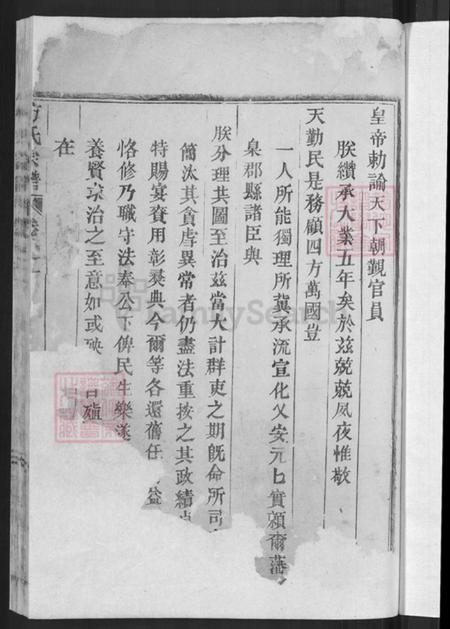 皇帝勅諭天下朝覲官員
朕纘承大業五年矣於茲兢兢夙夜惟敬
天勤民是務顧四方萬國豈
一人所能獨理所冀承流宣化乂安元七實頼爾藩
臬郡縣諸臣與
朕分理共圖至治茲當大計群吏之期旣命所司
簡汰其貪虐異常者仍盡法重按之其政績卓
特賜宴賚用彰羙典今爾等各還舊任 益
恪修乃職守法奉公下俾民生樂遂
養賢宗治之至意如或
在
氏宗譜
FamilySearch